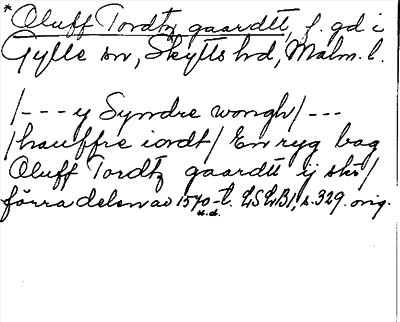 *Oluff Tordtz gaardtt, f. gd i
Gylle sn, Skytts hd, Malm. l.
/--- y Syndre wongh/ ---
/hauffre iordt/ En ryg bag
Oluff Tordtz gaardtt ij skr/
förra delen av 1570-t. LSLB1, s. 329. orig.
u.d.